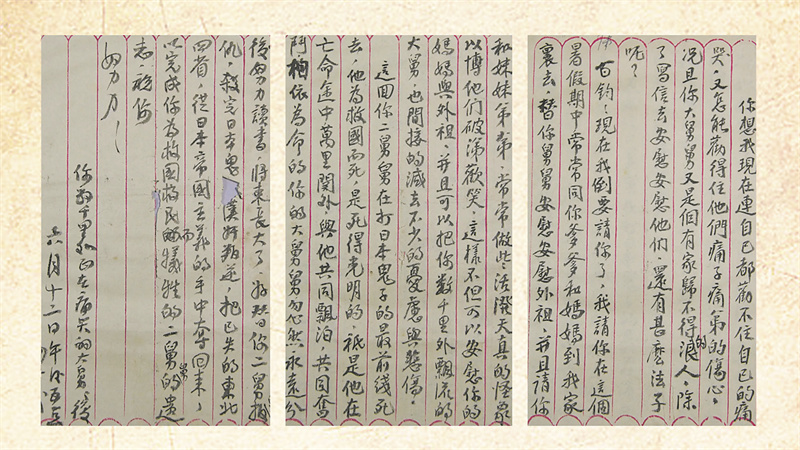 你想我現在連自已都勸不住自已的痛
哭。又怎能勸得住他們痛子痛弟的傷心。
况且你大舅舅又是個有家歸不得的浪人。除
了寫信去安慰安慰他們。還有甚麼法子
呢？
百鈞，現在我倒要請你了，我請你在這個
暑假期中常常同你爹爹和媽媽到我家
裏去，替你舅舅安慰安慰外祖，并且請你
和妹妹弟弟，常常做些活潑天真的怪象
以博他們破涕歡笑，這樣不但可以安慰你的
媽媽與外祖，并且可以把你數千里外飄流的
大舅，也間接的減去不少的憂慮與悲傷。
這回你二舅舅在打日本鬼子的最前綫死
去，他為救國而死，是死得光明的，祇是他在
亡命途中萬里関外，與他共同飄泊，共同奮
鬥相依為命的你的大舅舅忽然永遠分
後努力讀書，將來長大了，好你二舅
仇，殺完日本鬼漢奸叛逆，把已失的東北
四省，從日本帝國主義的手中奪回來，
以完成你為救國救民而犧牲的二舅舅的遺
志，祝你
努力！
你數千里外正在痛哭的大舅
六月十二日午後